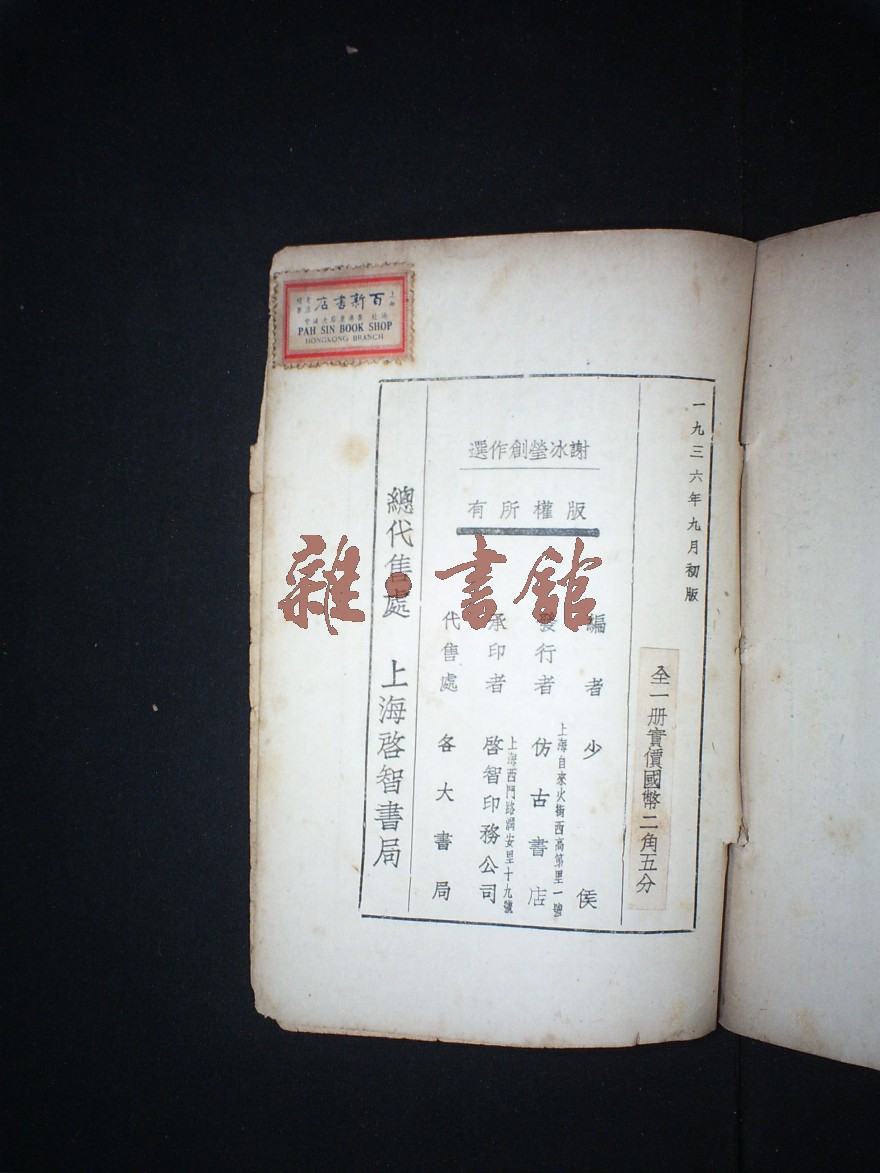 百新書店
PAH SIN BOOK SHOP
HONGKONG BRANCH
一九三六年九月初版
全一册實價國幣二角五分
謝冰瑩創作選
版權所有
編者 少侯
發行者 仿古書店
上海自來火街西高第里一號
承印者 啓智印務公司
上海西門路潤安里十九號
代售處 各大書局
總代售處 上海啓智書局
雜·書館